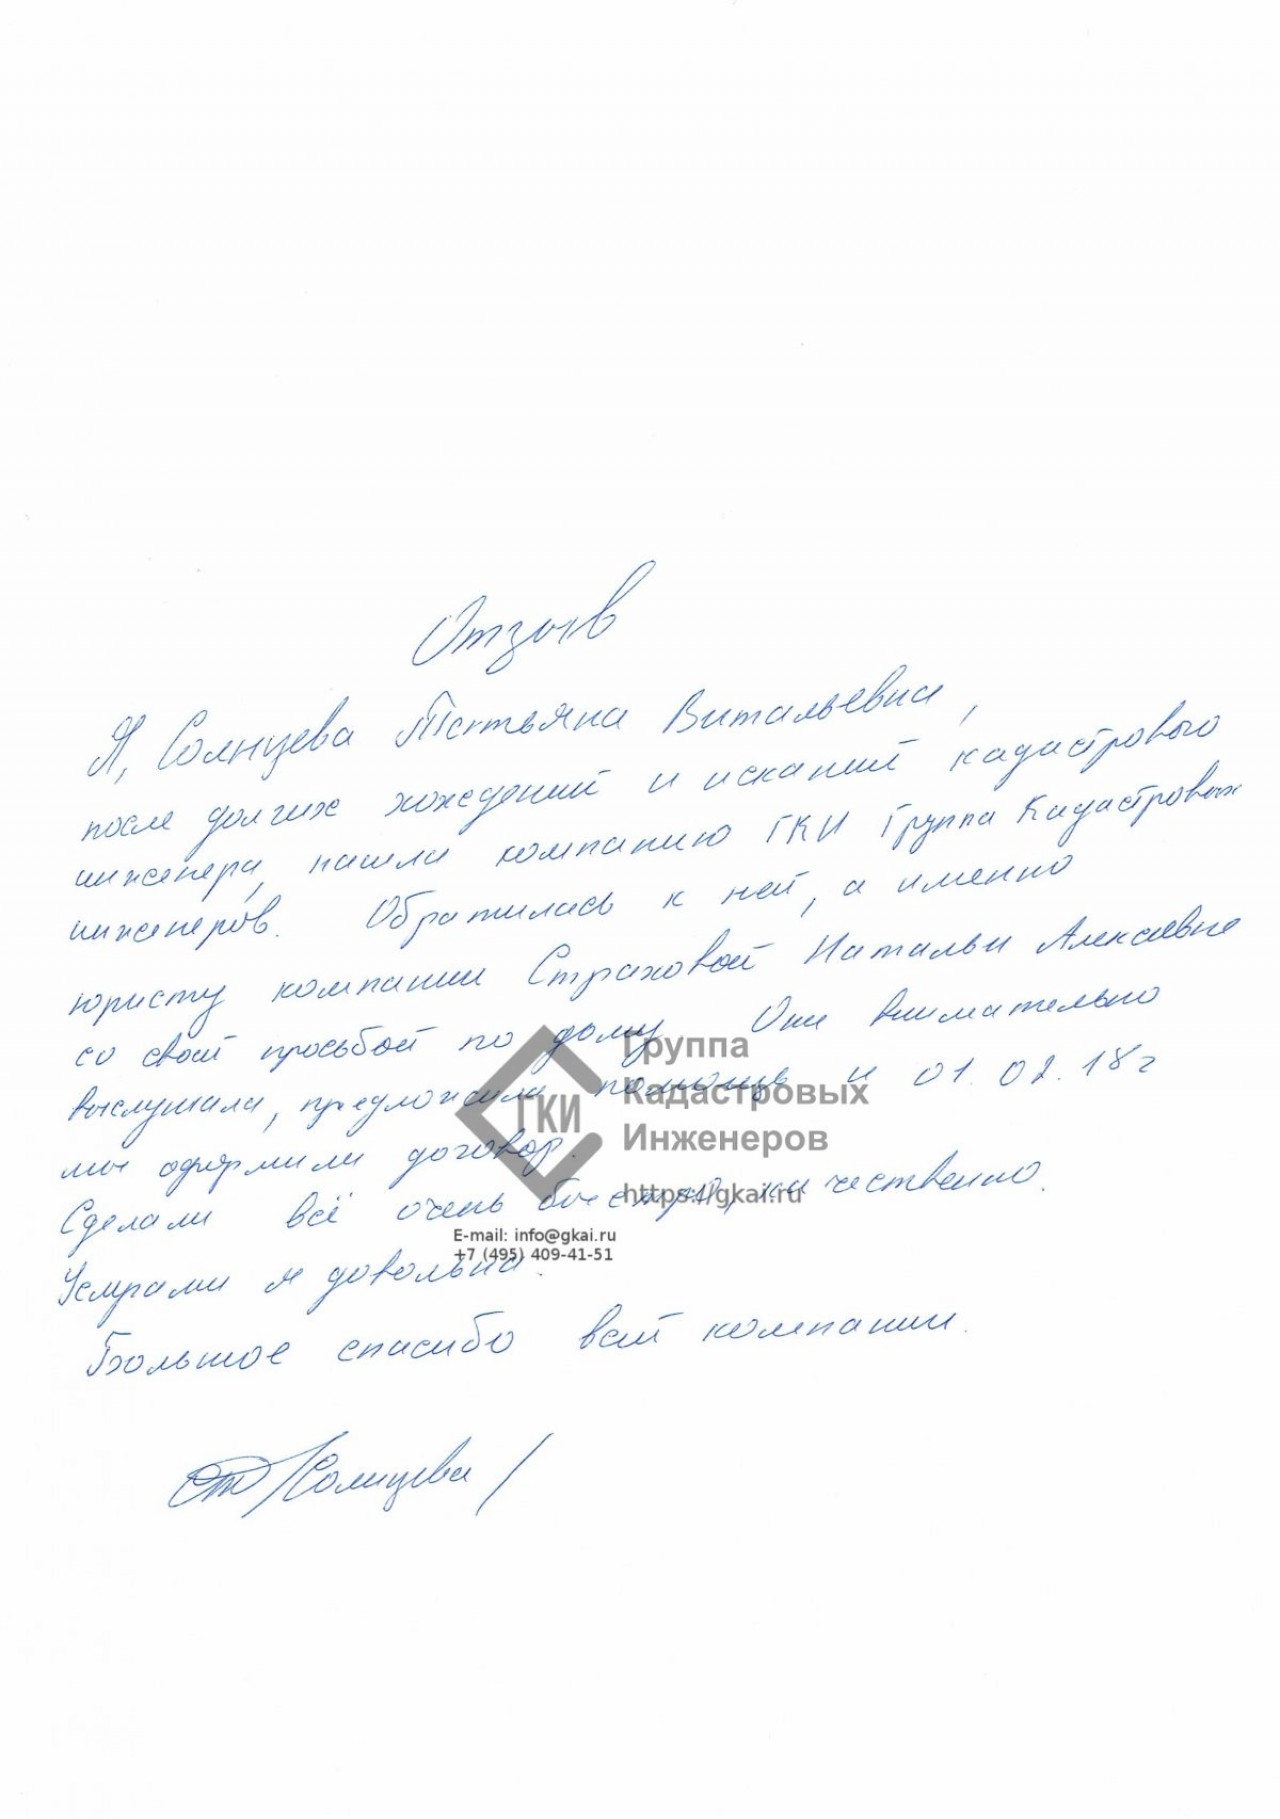 Отзыв
Я, Солнцева Татьяна Витальевна,
после долгих хождений и исканий кадастрового
инженера, нашли компанию ГКИ Группа Кадастровых
инженеров. Обратились к ней, а именно
юристу компании Страховой Натальи Алексеевне
со своей просьбой по дому. Они внимательно
выслушали, предложили помощь и 01.02.18г
мы оформили договор.
Сделали всё очень быстро, качественно.
Услугами я довольна.
Большое спасибо всей компании.
/Солнцева/
ГКИ
Группа
Кадастровых
Инженеров
https://gkai.ru
E-mail: info@gkai.ru
+7 (495) 409-41-51